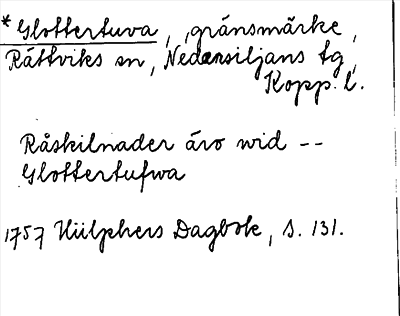 *Glottertuva, gränsmärke,
Rättviks sn, Nedansiljans fg,
Kopp. l.
Råskilnader äro wid --
Glottertufwa
1757 Hülphers Dagbok, s. 131.